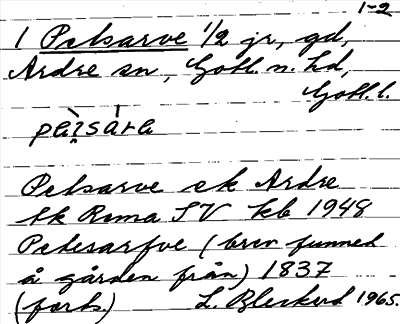 1-2
1 Petsarve 1/2 jr, gd,
Ardre sn, Gotl. n. hd,
Gotl. l.
Petsarve ek Ardre
bk Roma SV kb 1948
Petesarfve (brev funnet
å gården från) 1837
(forts.) L. Bleckerd 1965.